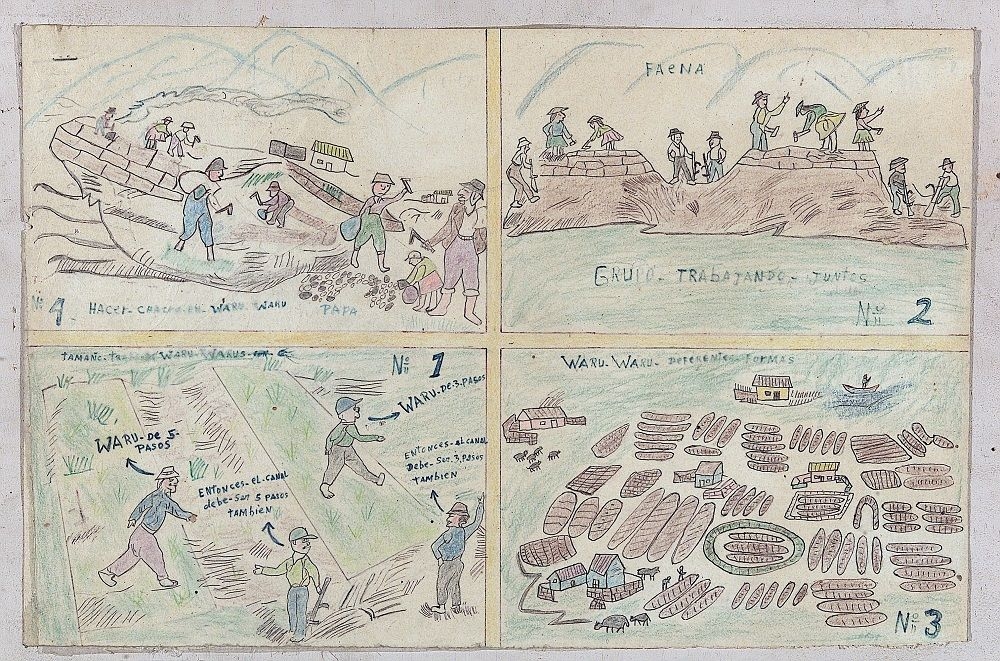 FAeNA
GRUPO - TRABAJANDO - JUNTOS
Nº 2
Nº 4. HACER - CHACRA - EN - WARU - WARU PAPA
TAMAÑO WARU - WARUS
Nº 1
WARU - DE 3 - PASOS
WARU - DE 5 -
PASOS
ENTONCES - el - CANAL
debe - Ser 5 PASOS
tAMbieN
ENTONCES - el CANAL
Debe - Ser 3 PASOS
tAMbieN
WARU - WARU - DeFeReNteS - FORMAS
Nº 3